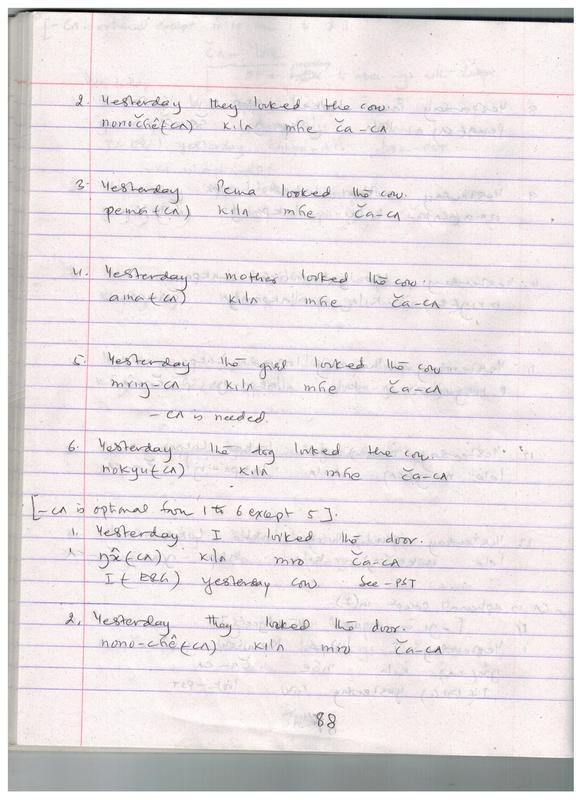 2. Yesterday they looked the cow.
nonočhê(-cʌ) kilʌ mɦe ča-cʌ
3. Yesterday Pema looked the cow.
pema(-cʌ) kilʌ mɦe ča-cʌ
4. Yesterday mother looked the cow.
ama(-cʌ) kilʌ mɦe ča-cʌ
5. Yesterday the girl looked the cow
mriŋ-cʌ kilʌ mɦe ča-cʌ
-cʌ is needed.
6. Yesterday the dog looked the cow.
nokyu(-cʌ) kilʌ mɦe ča-cʌ
[-cʌ is optional from 1 to 6 except 5].
1. Yesterday I looked the door.
(-cʌ) kilʌ mro ča-cʌ
I(-ERG) yesterday cow see-PST
2. Yesterday they looked the door.
nono-chê(-cʌ) kilʌ mro ča-cʌ
88